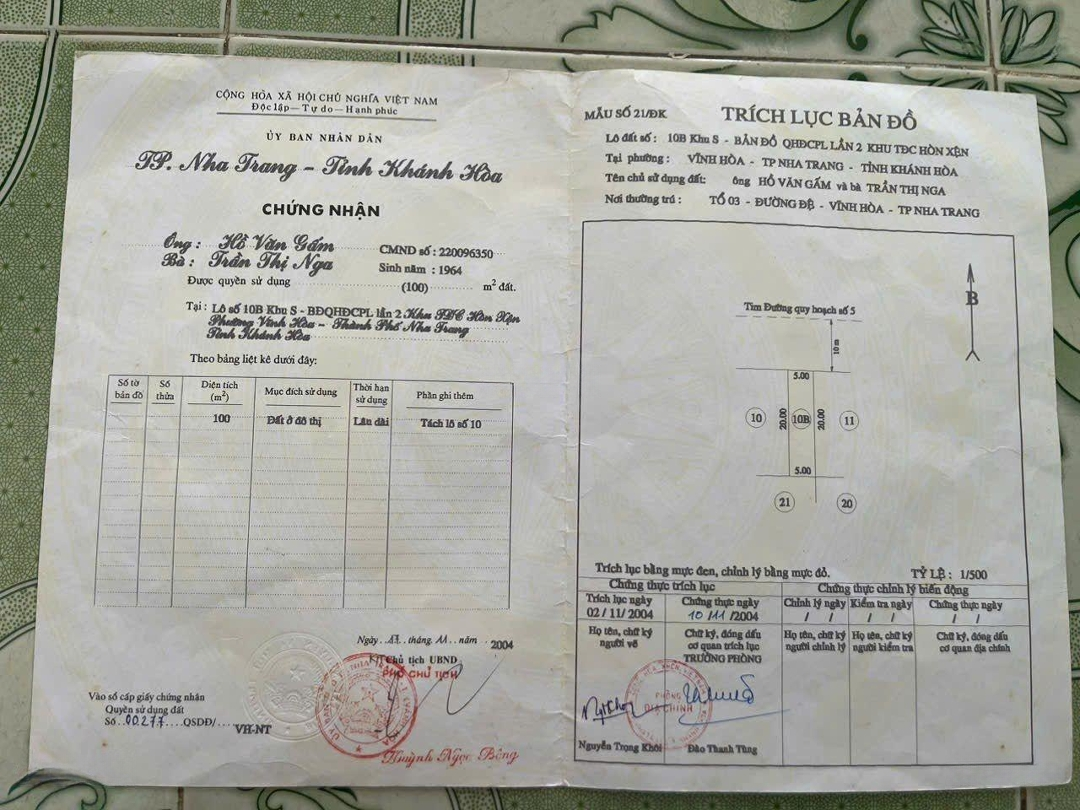 CỘNG HÒA XÃ HỘI CHỦ NGHĨA VIỆT NAM
Độc lập — Tự do — Hạnh phúc
ỦY BAN NHÂN DÂN
TP. Nha Trang - Tỉnh Khánh Hòa
CHỨNG NHẬN
Ông : Hồ Văn Gấm CMND số : 220096350
Bà : Trần Thị Nga Sinh năm : 1964
Được quyền sử dụng (100) m² đất.
Tại : Lô số 10B Khu S - BĐQHĐCPL lần 2 Khu TĐC Hòn Xện
Phường Vĩnh Hòa - Thành Phố Nha Trang
Tỉnh Khánh Hòa
Theo bảng liệt kê dưới đây:
Số tờ bản đồ Số thửa Diện tích (m²) Mục đích sử dụng Thời hạn sử dụng Phần ghi thêm
100 Đất ở đô thị Lâu dài Tách lô số 10
Ngày 17 tháng 11 năm 2004
KT Chủ tịch UBND
PHÓ CHỦ TỊCH
Vào sổ cấp giấy chứng nhận
Quyền sử dụng đất
Số 00277 QSDĐ/
VH-NT
Huỳnh Ngọc Bông
MẪU SỐ 21/ĐK
TRÍCH LỤC BẢN ĐỒ
Lô đất số : 10B Khu S - BẢN ĐỒ QHĐCPL LẦN 2 KHU TĐC HÒN XỆN
Tại phường : VĨNH HÒA - TP NHA TRANG - TỈNH KHÁNH HÒA
Tên chủ sử dụng đất: ông HỒ VĂN GẤM và bà TRẦN THỊ NGA
Nơi thường trú : TỔ 03 - ĐƯỜNG ĐỆ - VĨNH HÒA - TP NHA TRANG
B
Tim Đường quy hoạch số 5
10 m
5.00
10 20.00 10B 20.00 11
5.00
21 20
Trích lục bằng mực đen, chỉnh lý bằng mực đỏ. TỶ LỆ : 1/500
Chứng thực trích lục Chứng thực chỉnh lý biến động
Trích lục ngày Chứng thực ngày Chỉnh lý ngày Kiểm tra ngày Chứng thực ngày
02 / 11 / 2004 10 /11 /2004 / / / / / /
Họ tên, chữ ký người vẽ Chữ ký, đóng dấu cơ quan trích lục Họ tên, chữ ký người chỉnh lý Họ tên, chữ ký người kiểm tra Chữ ký, đóng dấu cơ quan địa chính
TRƯỞNG PHÒNG
PHÒNG
ĐỊA CHÍNH
Nguyễn Trọng Khôi Đào Thanh Tùng